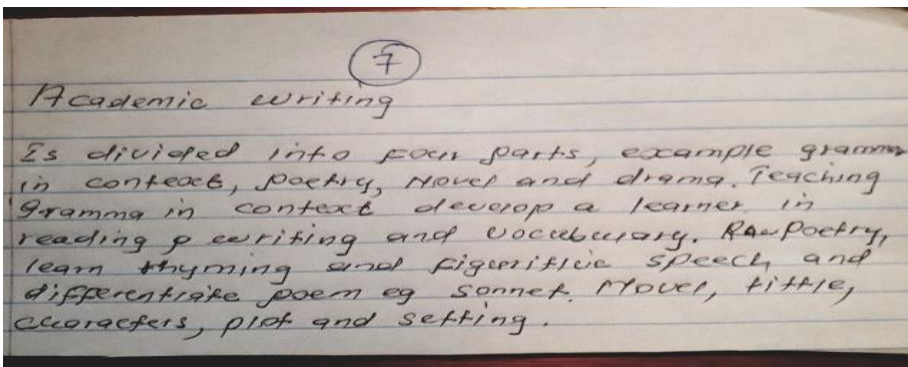 7
Academic writing
Is divided into four parts, example gramma
in context, poetry, Novel and drama. Teaching
gramma in context develop a learner in
reading & writing and vocubulary. Poetry,
learn rhyming and speech and
differentiate poem eg sonnet. Novel, tittle,
characters, plot and setting.